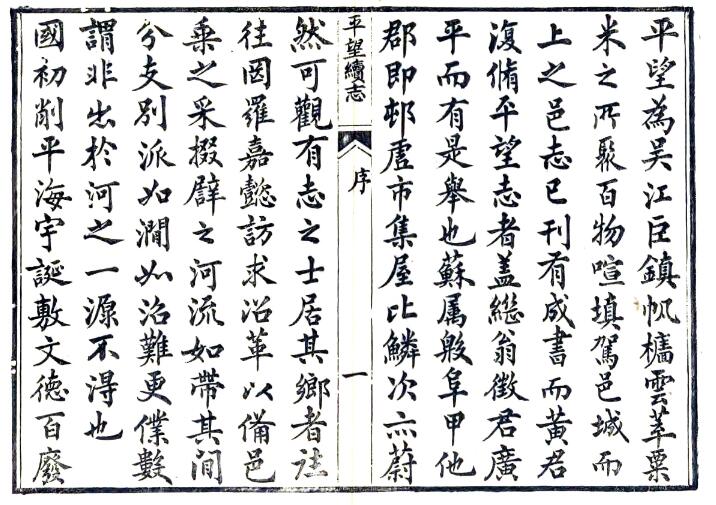 平望為吳江巨鎮帆檣雲萃粟
米之所聚百物喧填駕邑城而
上之邑志已刊有成書而黃君
復脩平望志者蓋繼翁徵君廣
平而有是舉也蘇属殷阜甲他
郡即邨虗市集屋比鱗次亦蔚
平望續志
序
一
然可觀有志之士居其鄉者往
往罔羅嘉懿訪求沿革以備邑
乘之采掇譬之河流如帶其間
分支別派如澗如沼難更僕數
謂非出於河之一源不淂也
國初削平海宇誕敷文德百廢